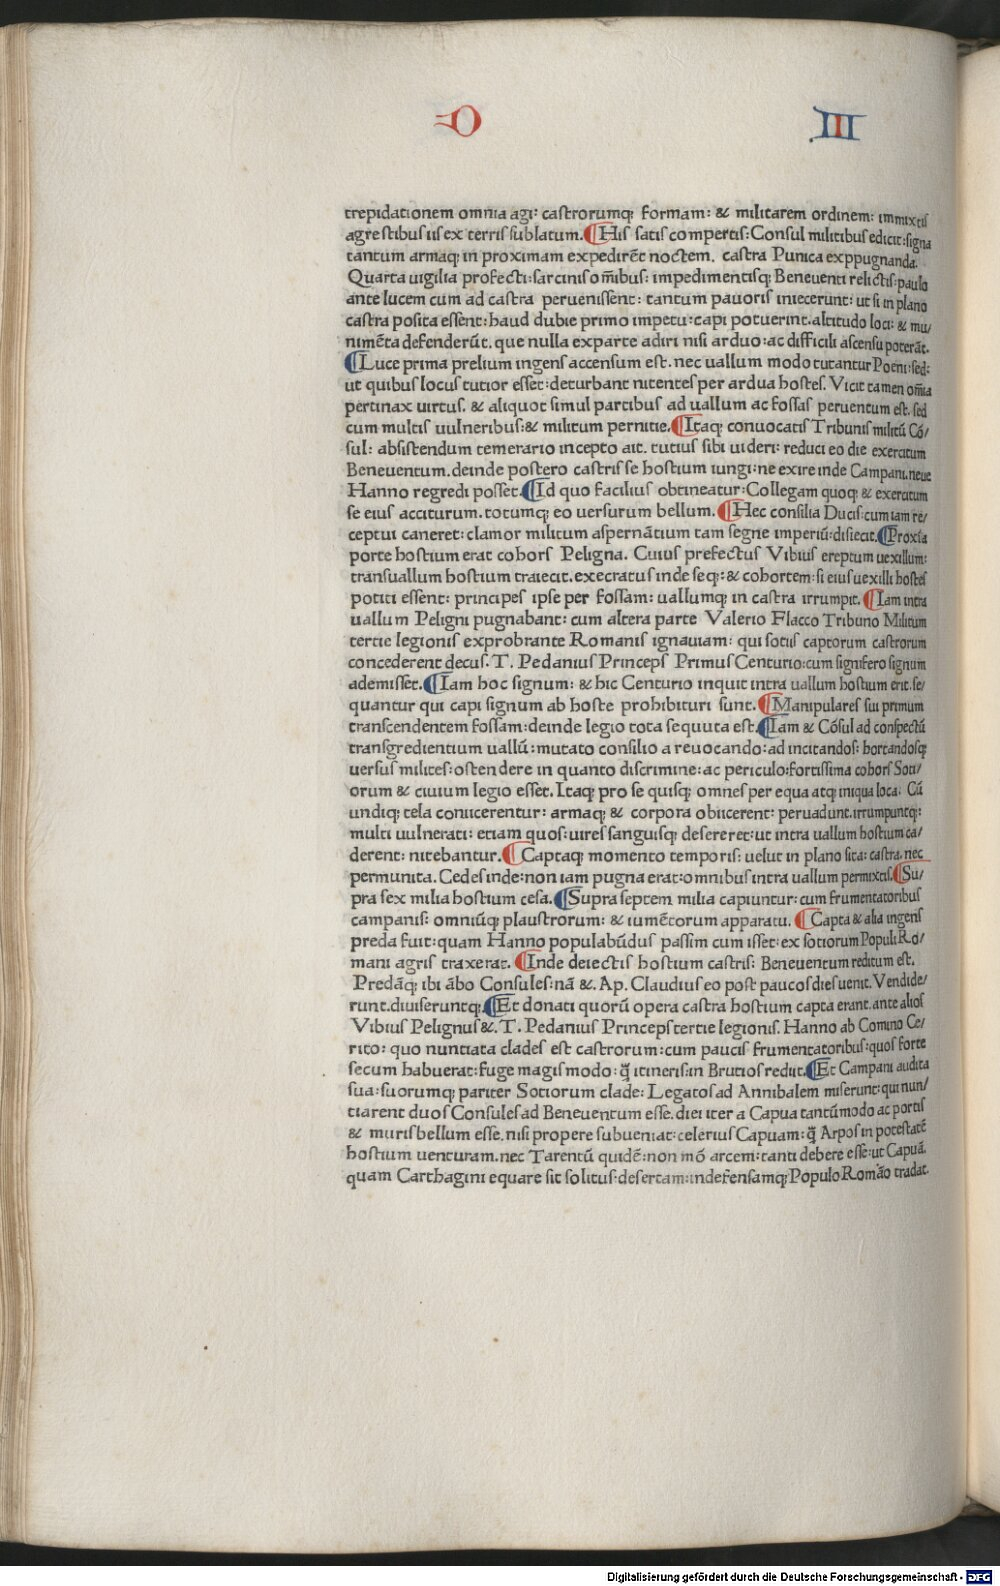 D III
trepidationem omnia agi: castrorumq; formam: & militarem ordinem: immixtis
agrestibus iis ex terris sublatum. ¶His satis compertis: Consul militibus edicit: signa
tantum armaq; in proximam expedirēt noctem. castra Punica exppugnanda.
Quarta uigilia profecti: sarcinis om̄ibus: impedimentisq; Beneuenti relictis: paulo
ante lucem cum ad castra peruenissent: tantum pauoris iniecerunt: ut si in plano
castra posita essent: haud dubie primo impetu: capi potuerint. altitudo loci: & mu/
nimēta defenderūt. que nulla exparte adiri nisi arduo: ac difficili ascensu poterāt.
¶Luce prima prelium ingens accensum est. nec uallum modo tutantur Poeni: sed:
ut quibus locus tutior esset: deturbant nitentes per ardua hostes. Vicit tamen om̄ia
pertinax uirtus. & aliquot simul partibus ad uallum ac fossas peruentum est. sed
cum multis uulneribus: & militum pernitie. ¶Itaq; conuocatis Tribunis militū Cō/
sul: absistendum temerario incepto ait. tutius sibi uideri: reduci eo die exercitum
Beneuentum. deinde postero castris se hostium iungi: ne exire inde Campani. neue
Hanno regredi posset. ¶Id quo facilius obtineatur: Collegam quoq; & exercitum
se eius acciturum. totumq; eo uersurum bellum. ¶Hec consilia Ducis: cum iam re/
ceptui caneret: clamor militum aspernātium tam segne imperiū: disiecit. ¶Proxīa
porte hostium erat cohors Peligna. Cuius prefectus Vibius ereptum uexillum:
transuallum hostium traiecit. execratus inde seq;: & cohortem: si eius uexilli hostes
potiti essent: princeps ipse per fossam: uallumq; in castra irrumpit. ¶Iam intra
uallum Peligni pugnabant: cum altera parte Valerio Flacco Tribuno Militum
tertie legionis exprobrante Romanis ignauiam: qui sotiis captorum castrorum
concederent decus. T. Pedanius Princeps Primus Centurio: cum signifero signum
ademisset. ¶Iam hoc signum: & hic Centurio inquit intra uallum hostium erit. se/
quantur qui capi signum ab hoste prohibituri sunt. ¶Manipulares sui primum
transcendentem fossam: deinde legio tota sequuta est. ¶Iam & Cōsul ad conspectū
transgredientium uallū: mutato consilio a reuocando: ad incitandos: hortandosq;
uersus milites: ostendere in quanto discrimine: ac periculo: fortissima cohors Soti/
orum & ciuium legio esset. Itaq; pro se quisq; omnes per equa atq; iniqua loca: Cū
undiq; tela coniicerentur: armaq; & corpora obiicerent: peruadunt. irrumpuntq;:
multi uulnerati: etiam quos: uires sanguisq; desereret: ut intra uallum hostium ca/
derent: nitebantur. ¶Captaq; momento temporis: uelut in plano sita: castra. nec
permunita. Cedes inde: non iam pugna erat: omnibus intra uallum permixtis. ¶Su/
pra sex milia hostium cesa. ¶Supra septem milia capiuntur: cum frumentatoribus
campanis: omniūq; plaustrorum: & iumētorum apparatu. ¶Capta & alia ingens
preda fuit: quam Hanno populabūdus passim cum isset: ex sotiorum Populi Ro/
mani agris traxerat. ¶Inde deiectis hostium castris: Beneuentum reditum est.
Predāq; ibi ābo Consules: nā &. Ap. Claudius eo post paucos dies uenit. Vendide/
runt. diuiseruntq; ¶Et donati quorū opera castra hostium capta erant. ante alios
Vibius Pelignus &. T. Pedanius Princeps tertie legionis. Hanno ab Comino Ce/
rito: quo nuntiata clades est castrorum: cum paucis frumentatoribus: quos forte
secum habuerat: fuge magis modo: q̄ itineris: in Brutios rediit. ¶Et Campani audita
sua: suorumq; pariter Sotiorum clade: Legatos ad Annibalem miserunt: qui nun/
tiarent duos Consules ad Beneuentum esse. diei iter a Capua tantūmodo ac portis
& muris bellum esse. nisi propere subueniat: celerius Capuam: q̄ Arpos in potestatē
hostium uenturam. nec Tarentū quidē: non mō arcem: tanti debere esse: ut Capuā.
quam Carthagini equare sit solitus: desertam: indefensamq; Populo Romāo tradat.
Digitalisierung gefördert durch die Deutsche Forschungsgemeinschaft - DFG